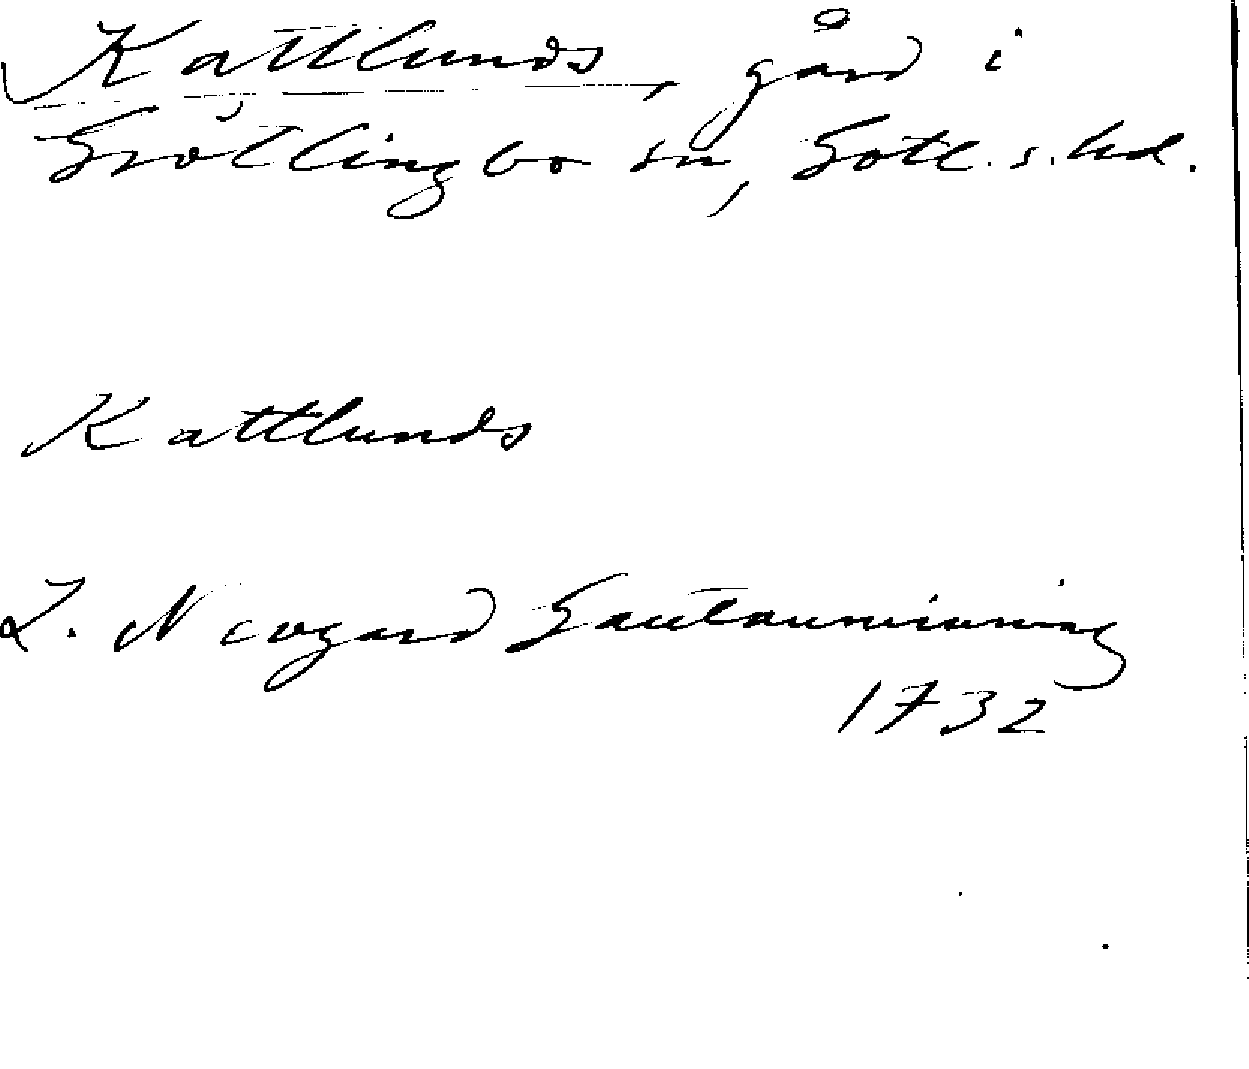 Kattlunds, gård i
Grötlingbo sn, Gotl. s. hd.
Kattlunds
L. Neogard Gautauminning
1732